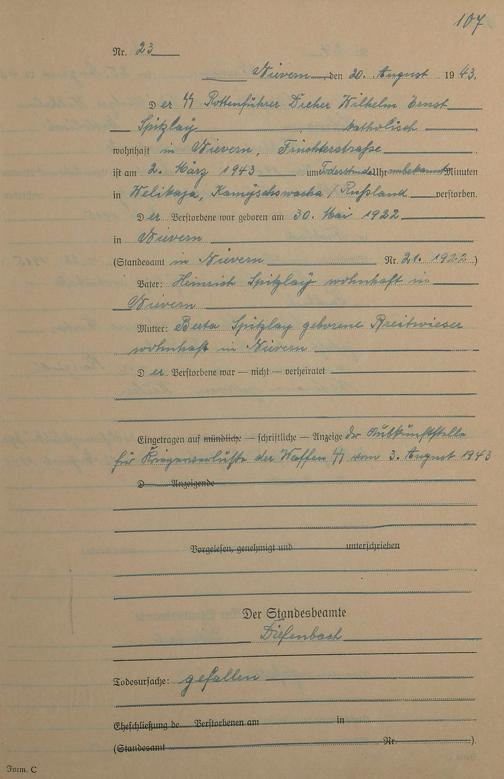 107
Nr. 23
Nievern, den 20. August 1943.
Der ᛋᛋ Rottenführer Dreher Wilhelm Ernst
Spitzlay katholisch
wohnhaft in Nievern,
ist am 2. März 1943 um Todesstunde Uhr unbekannt Minuten
in Welikaja, Kamyschewacha / Rußland verstorben.
Der Verstorbene war geboren am 30. Mai 1922
in Nievern
(Standesamt in Nievern Nr. 21. 1922)
Vater: Heinrich Spitzlay wohnhaft in
Nievern
Mutter: Berta Spitzlay geborene Breitwieser
wohnhaft in Nievern
Der Verstorbene war — nicht — verheiratet
Eingetragen auf mündliche — schriftliche — Anzeige der Auskunftstelle
für Kriegerverluste der Waffen ᛋᛋ vom 3. August 1943
D Anzeigende
Vorgelesen, genehmigt und unterschrieben
Der Standesbeamte
Diefenbach
Todesursache: gefallen
Eheschließung de Verstorbenen am in
(Standesamt Nr. ).
Form. C